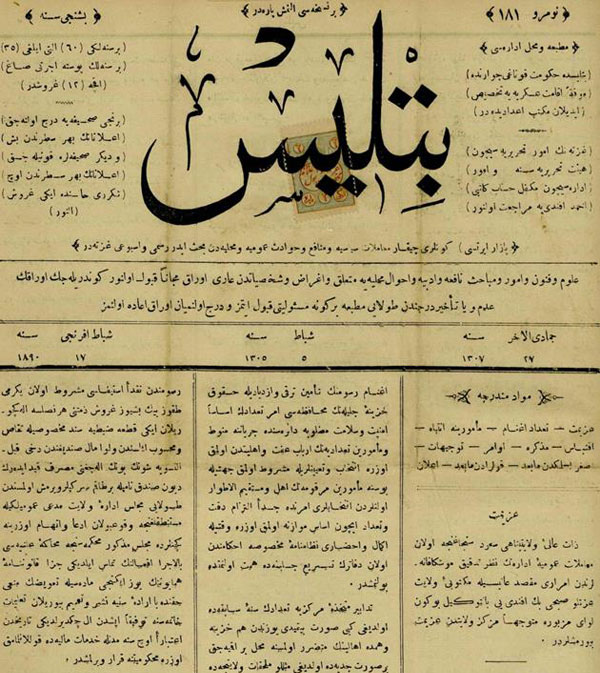 نومرو ﴿ ۱۸۱ ﴾
﴿ برنسخه‌سی الّتمش پاره‌در ﴾
﴿ بشنجی سنه ﴾
﴿ مطبعه و محل اداره‌سی ﴾
بتلیسده حکومت قوناغی جوارنده
موقة اقامت عسکریه‌یه تخصیص
ایدیلان مکتب اعدادیده‌در
غزته‌نك امور تحریریه‌سیچون
هیئت تحریریه‌سنه و امور
اداره‌سیچون مکفل حساب کاتبی
احمد افندی‌یه مراجعت اولنور
بتلیس
برسنه‌لکی (٦٠) التی ایلغی (٣٥)
برسنه‌لك پوسته اجرتی صاغ
اقچه (١٢) غروشدر
برنجی صحیفه‌یه درج اولنه‌جق
اعلاناتك بهر سطرندن بش
و دیکر صحیفه‌لره قونیله‌جق
اعلاناتك بهر سطرندن اوچ
تکرری حالنده ایکی غروش
النور
﴿ بازار ایرتسی ﴾ کونلری چیقار معاملات سیاسیه و منافع و حوادث عمومیه و محلیه‌دن بحث ایدر رسمی و اسبوعی غزته‌در ﴾
علوم و فنون و امور و مباحث نافعه و ادبیه و احوال محلیه‌یه متعلق و اغراض و شخصیاتدن عاری اوراق مجاناً قبول اولنور کوندریله‌جك اوراقك
عدم و یا تأخیر درجندن طولایی مطبعه برکونه مسئولیتی قبول ایتمز و درج اولنمیان اوراق اعاده اولنمز
جمادی الآخر سنه
٢٧ ١٣٠٧
شباط سنه
٥ ١٣٠٥
شباط افرنجی سنه
١٧ ١٨٩٠
مواد مندرجه
عزیمت — تعداد اغنام — مأمورینه انتباه —
اقتباس — مذکره — اوامر — توجیهات —
صغر بسلمکدن مابعد — قولرادن مابعد — اعلان
عزیمت
ذات عالیٔ ولایتپناهی سعرد سنجاغنجه اولان
معاملات عمومیهٔ اداره‌نك نظر تدقیق موشکافانه‌
لرندن امراری مقصد عالیسیله مکتوبیٔ ولایت
عزتلو صبحی بك افندی بی بالتوکیل بوکون
لوای مزبوره متوجهاً مرکز ولایتدن عزیمت
بیورمشلردر
اغنام رسومنك تأمین ترقی و ازدیادیله حقوق
خزینهٔ جلیله‌نك محافظه‌سی امر تعدادك اساساً
امنیت و سلامت مطلوبه دائره‌سنده جریاننه منوط
و مأمورین تعدادیه‌نك ارباب عفت و اهلیتدن اولمق
اوزره انتخاب و تعیینلریله مشروط اولمق جهتیله
بوسنه مأمورین مرقومه‌نك اهل و مستقیم الاطوار
اولنلردن انتخابلری امرنده جداً التزام دقت
و تعداد ایچون اساس موازنه اولمق اوزره وقتیله
اکمال و احضاری نظامنامهٔ مخصوصه احکامندن
اولان دفاترك تسریع جلبنده همت اولنمقده
بولنمشدر
تدابیر متخذهٔ مرکزیه تعدادك سنهٔ سابقه‌ده
اولدیغی کبی صورت بیقیدی بوزندن هم خزینه
و همده اهالینك متضرر اولمسنه محل براقیه‌جق
بر صورت جدیه‌ده اولدیغی مثللو ملحقات ولایتجه‌ده
رسومندن نقداً استرفاسی مشروط اولان یکرمی
طقوز بیك بشیوز غروش ذمتی هرنصلسه اله‌کچو‌
ریلان ایکی قطعه ضبطیه سند مخصوصیله تقاص
و محسوب ایلسندن ولوا مال صندیغندن دخی قبل
التسویه شونك بونك آله‌جغنی مصرف قید ایده‌رك
دیون صندق نامیله برطاقم سرکیلر ویرمش اولمسندن
طولایی مجلس ادارهٔ ولایت مدعی عمومیلکیله
مستنطقلغنجه وقوعبولان ادعا و اتهام اوزرینه
کیفیت‌ده مجلس مذکور محکمه‌سنجه محاکمهٔ علنیه‌سی
بالاجرا افعالنك تماس ایلدیکی جزا قانوننامهٔ
همایوننك یوز ایکنجی ماده‌سیله تعویضك منفی
حقنده بااراده سنیه نشر و تفهیم بیوریلان تعلیمات
خاتمه‌سنه توفیقاً ایشدن ال چکدیرلدیکی تاریخدن
اعتباراً اوچ سنه مدتله خدمات مالیه‌ده قوللانلمامق
اوزره محکومیتنه قرار ویرلمشدر